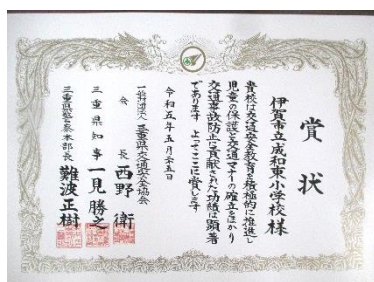 賞状
伊賀市立成和東小学校様
貴校は交通安全教育を積極的に推進し
児童の保護と交通マナーの確立をはかり
交通事故防止に貢献された功績は顕著
であります よってここに賞します
令和五年五月
一般財団法人 三重県交通安全協会
会長 西野 衛
三重県知事 一見勝之
三重県警察本部長 難波正樹